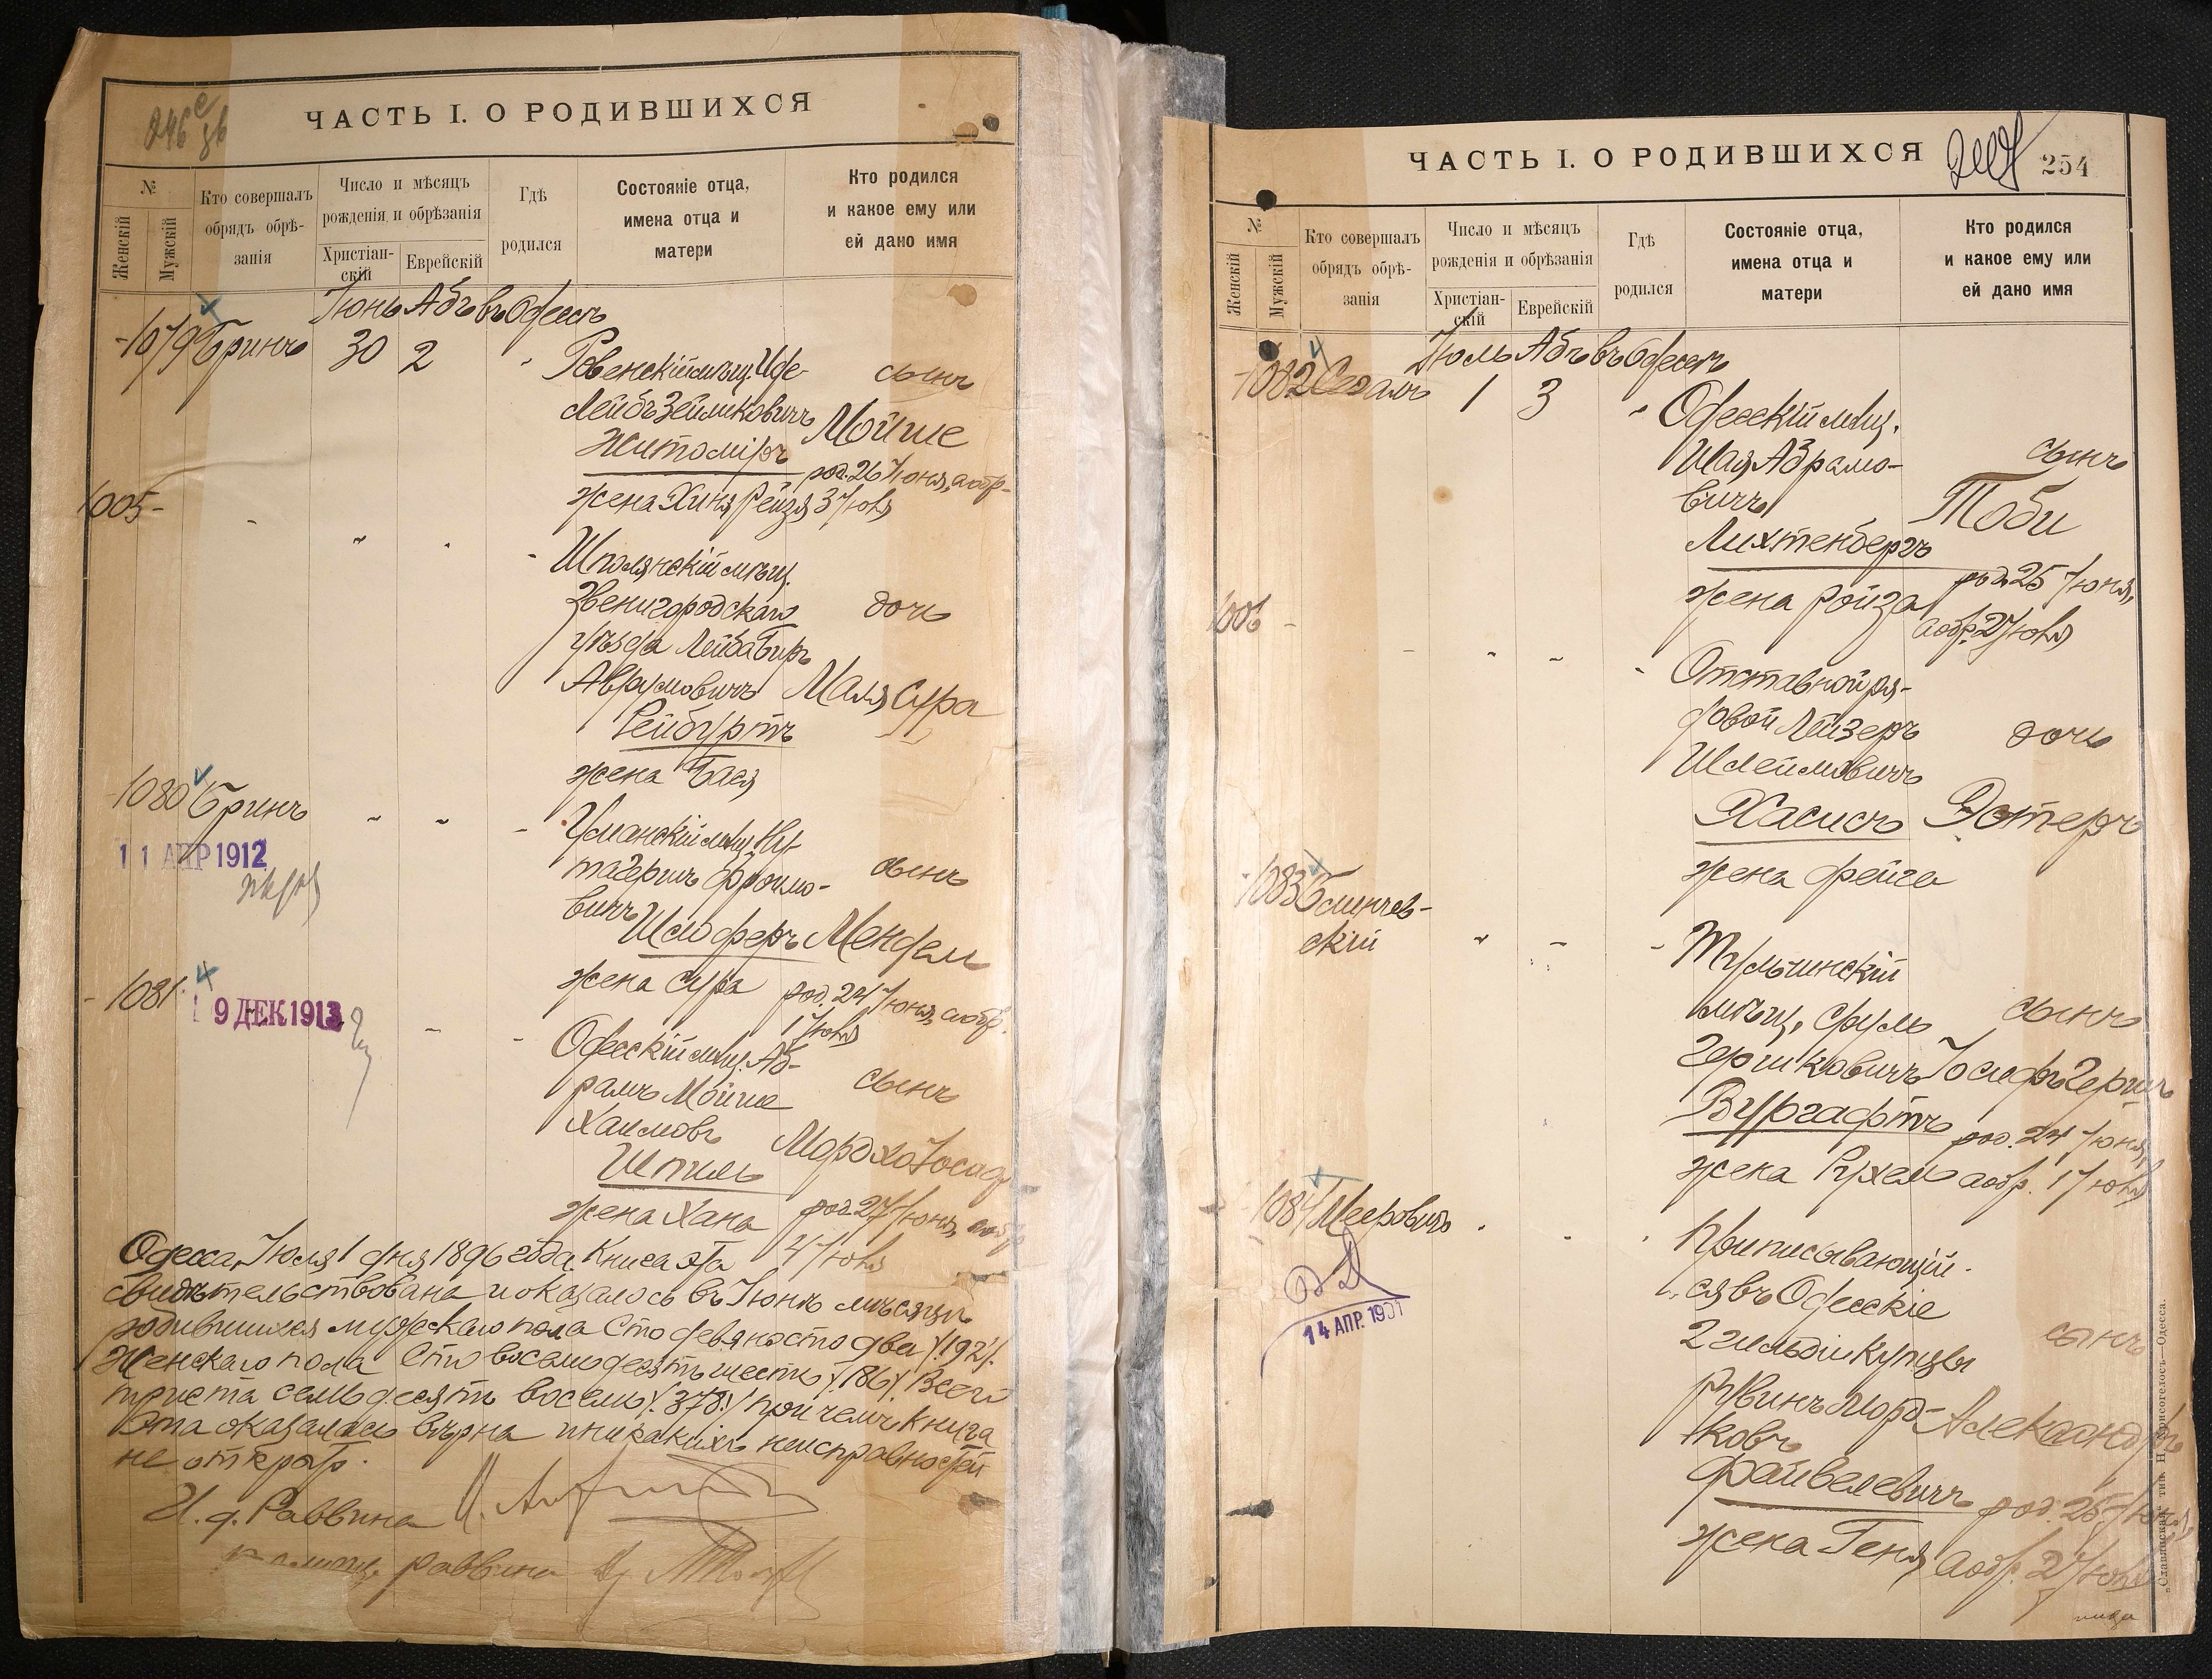 ЧАСТЬ I. О РОДИВШИХСЯ
246
№
Женскій
Мужскій
Кто совершалъ обрядъ обрѣ-занія
Число и мѣсяцъ рожденія и обрѣзанія
Христіан-скій
Еврейскій
Гдѣ родился
Состояніе отца, имена отца и матери
Кто родился и какое ему или ей дано имя
Іюнь Абъ въ Одессѣ
1079 Бринъ 30 2 "
Ровенскій мѣщ. Иде-
Лейбъ Зейликовичъ
Житоміръ
жена Хиня Рейзя
сынъ
Мойше
род. 26 Іюня, а обр.
3 Іюля
1005 - - " " -
Шполянскій мѣщ.
Звенигородскаго
уѣзда Лейба Беръ
Аврумовичъ
Рейбуртъ
жена Бася
дочь
Маля Сура
1080 Бринъ
11 АПР 1912
Уманскій мѣщ. Ну-
та Герш Фроимо-
вичъ Шлоферъ
жена Сура
сынъ
Мендель
род. 24 Іюня, а обр.
1 Іюля
1081
19 ДЕК 1913
Одесскій мѣщ. Аб-
рамъ Мойше
Хаимовъ
Шпиль
жена Хана
сынъ
Мордхо Іосиф
род. 27 Іюня, а обр
4 Іюля
Одесса, Іюля 1 дня 1896 года. Книга эта
свидѣтельствована и оказалось въ Іюнѣ мѣсяцѣ
родившихся мужескаго пола Сто девяносто два /192/.
Женскаго пола Сто восемьдесятъ шесть /186/. Всего
триста семьдесятъ восемь /378/ при чемъ книга
эта оказалась вѣрна и никакихъ неисправностей
не открыто.
И. д. Раввина
раввина
ЧАСТЬ I. О РОДИВШИХСЯ
254
№
Женскій
Мужскій
Кто совершалъ обрядъ обрѣ-занія
Число и мѣсяцъ рожденія и обрѣзанія
Христіан-скій
Еврейскій
Гдѣ родился
Состояніе отца, имена отца и матери
Кто родился и какое ему или ей дано имя
Іюль Абъ въ Одессѣ
1082 1 3 "
Одесскій мѣщ.
Шая Абрамо-
вичъ
Лихтенбергъ
жена Ройза
сынъ
Тоби
род. 25 Іюня,
а обр. 2 Іюля
1006 - - " - "
Отставной ря-
довой Лейзеръ
Шлеймовичъ
Хасисъ
жена Фейга
дочь
Эстеръ
1083 Блинчев-
скій
Тульчинскій
мѣщ. Сруль
Гершковичъ
Вургафтъ
жена Рухель
сынъ
Іосифъ Гершъ
род. 24 Іюня,
а обр. 1 Іюля
1084 Мееровичъ
14 АПР. 1901
Приписывающій-
ся въ Одесскіе
2 гильдіи купцы
Рувинъ Морд-
ковъ
Файвелевичъ
жена Геня
сынъ
Александръ
род. 25 Іюня,
а обр. 2 Іюля
„Славянская" тип. Н. Хрисогелосъ—Одесса.